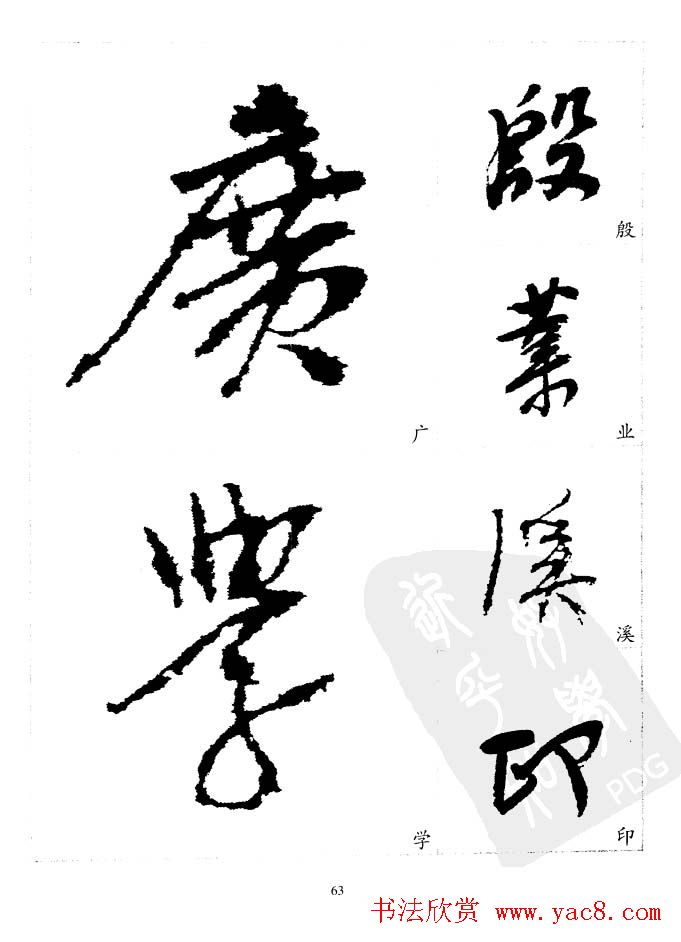 殷
殷
業
业
溪
溪
印
印
廣
广
學
学
63
书法欣赏 www.yac8.com
PDG